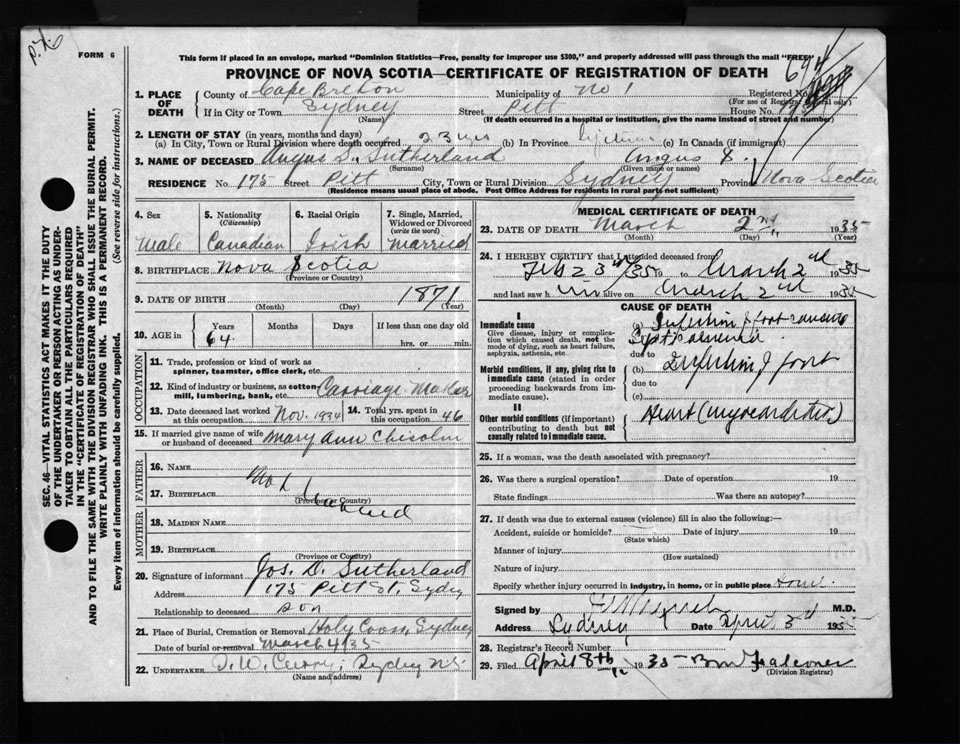 P.X.
FORM 6
This form if placed in an envelope, marked "Dominion Statistics—Free, penalty for improper use $300," and properly addressed will pass through the mail "FREE"
PROVINCE OF NOVA SCOTIA—CERTIFICATE OF REGISTRATION OF DEATH
1. PLACE OF DEATH
County of Cape Breton Municipality of No 1 Registered No.
(For use of Registrar General only)
If in City or Town Sydney Street Pitt House No.
(Name) (If death occurred in a hospital or institution, give the name instead of street and number)
2. LENGTH OF STAY (in years, months and days)
(a) In City, Town or Rural Division where death occurred 23 yrs (b) In Province Lifetime (c) In Canada (if immigrant)
3. NAME OF DECEASED Angus S. Sutherland Angus S.
(Surname) (Given name or names)
RESIDENCE No. 175 Street Pitt City, Town or Rural Division Sydney Province Nova Scotia
(Residence means usual place of abode. Post Office Address for residents in rural parts not sufficient)
SEC. 46—VITAL STATISTICS ACT MAKES IT THE DUTY
OF THE UNDERTAKER OR PERSON ACTING AS UNDER-
TAKER TO OBTAIN ALL THE PARTICULARS REQUIRED
IN THE "CERTIFICATE OF REGISTRATION OF DEATH"
AND TO FILE THE SAME WITH THE DIVISION REGISTRAR WHO SHALL ISSUE THE BURIAL PERMIT.
WRITE PLAINLY WITH UNFADING INK. THIS IS A PERMANENT RECORD.
Every item of information should be carefully supplied. (See reverse side for instructions.)
4. Sex 5. Nationality (Citizenship) 6. Racial Origin 7. Single, Married, Widowed or Divorced (write the word)
Male Canadian Irish Married
8. BIRTHPLACE Nova Scotia
(Province or Country)
9. DATE OF BIRTH 1871
(Month) (Day) (Year)
10. AGE in Years Months Days If less than one day old
64 hrs. or min.
OCCUPATION
11. Trade, profession or kind of work as spinner, teamster, office clerk, etc.
12. Kind of industry or business, as cotton mill, lumbering, bank, etc. Carriage Maker
13. Date deceased last worked at this occupation Nov. 1934 14. Total yrs. spent in this occupation 46
15. If married give name of wife or husband of deceased Mary Ann Chisolm
FATHER
16. NAME
17. BIRTHPLACE
(Province or Country)
Not
MOTHER
18. MAIDEN NAME
19. BIRTHPLACE
(Province or Country)
20. Signature of informant Jos. D. Sutherland
Address 175 Pitt St, Sydney
Relationship to deceased son
21. Place of Burial, Cremation or Removal Holy Cross, Sydney
Date of burial or removal March 4/35
22. UNDERTAKER D. W. Curry, Sydney N.S.
(Name and address)
MEDICAL CERTIFICATE OF DEATH
23. DATE OF DEATH March 2nd 1935
(Month) (Day) (Year)
24. I HEREBY CERTIFY that I attended deceased from
Feb 23rd/35 19 to March 2nd 1935
and last saw him alive on March 2nd 1935
CAUSE OF DEATH
I
Immediate cause
Give disease, injury or complication which caused death, not the mode of dying, such as heart failure, asphyxia, asthenia, etc.
(a) Infection of foot
Septicaemia
due to
Morbid conditions, if any, giving rise to immediate cause (stated in order proceeding backwards from immediate cause).
(b) Infection of foot
due to
(c)
II
Other morbid conditions (if important) contributing to death but not causally related to immediate cause.
Heart (myocarditis)
25. If a woman, was the death associated with pregnancy?
26. Was there a surgical operation? Date of operation 19
State findings Was there an autopsy?
27. If death was due to external causes (violence) fill in also the following:—
Accident, suicide or homicide? Date of injury 19
(State which)
Manner of injury
(How sustained)
Nature of injury
Specify whether injury occurred in industry, in home, or in public place Home
Signed by M.D.
Address Sydney Date April 3rd 1935
28. Registrar's Record Number
29. Filed April 8th 1935 Falconer
(Division Registrar)